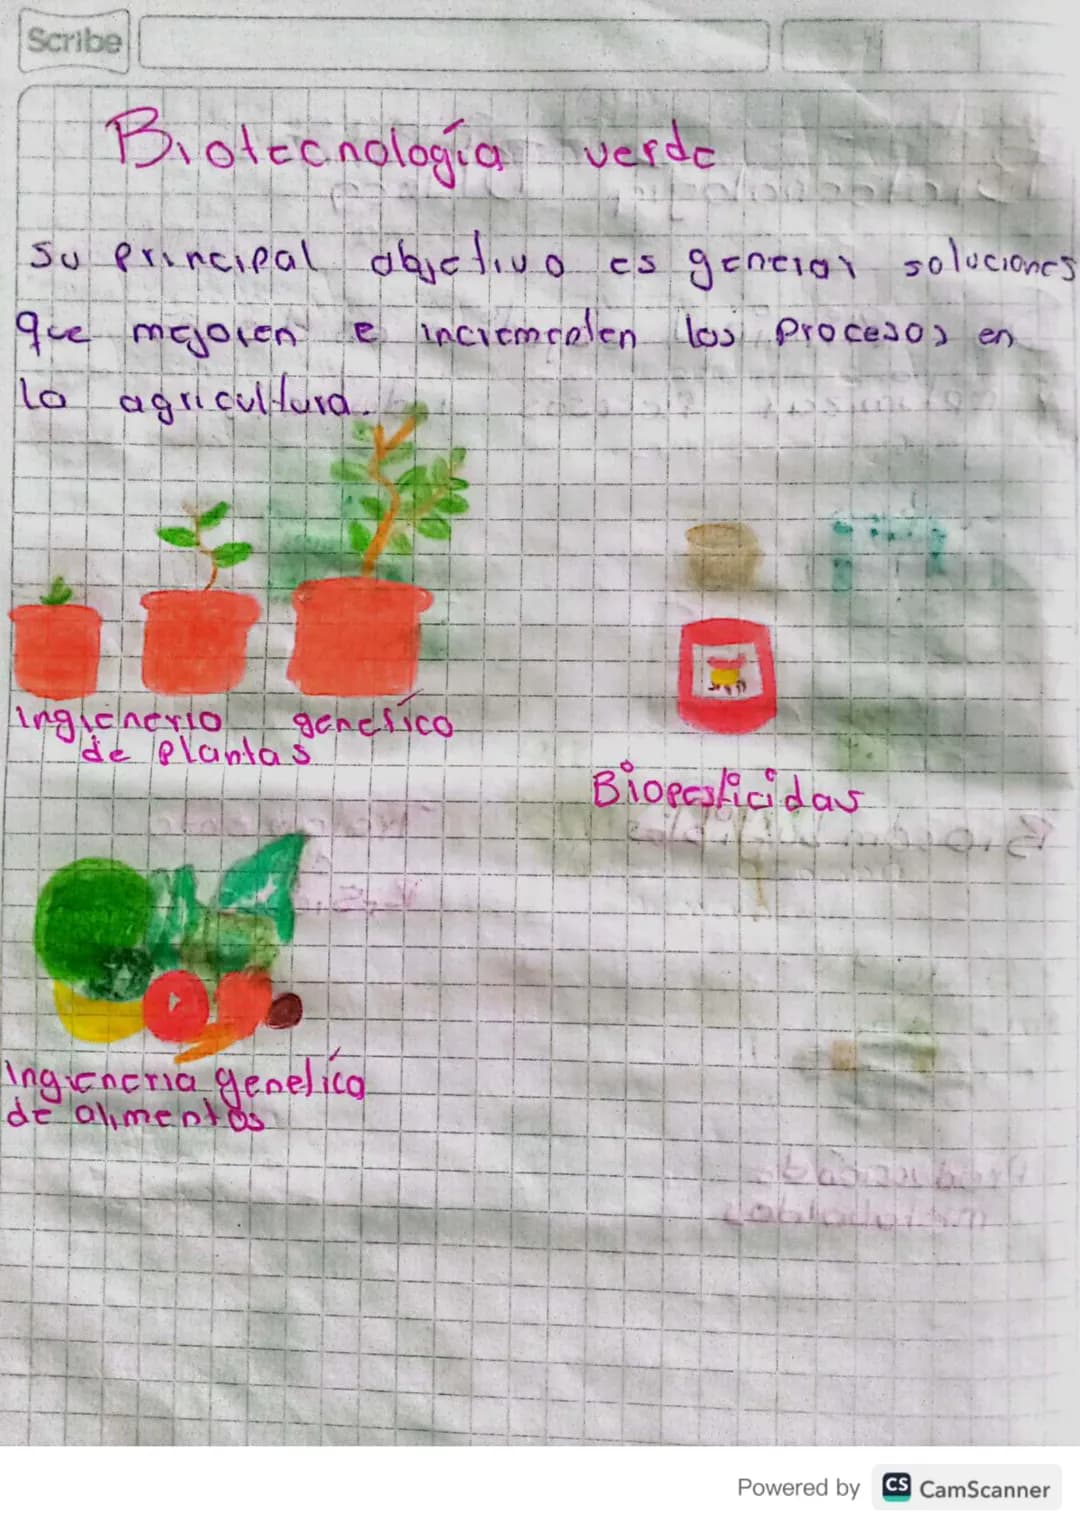 Scribe
Biotecnología verde
su principal objetivo es generar soluciones
que mejoren e incrementen los procesos en
la agricultura.
Ingieneria genetica
de plantas
Biopesticidas
Ingieneria genetica
de alimentos
Powered by CS CamScanner